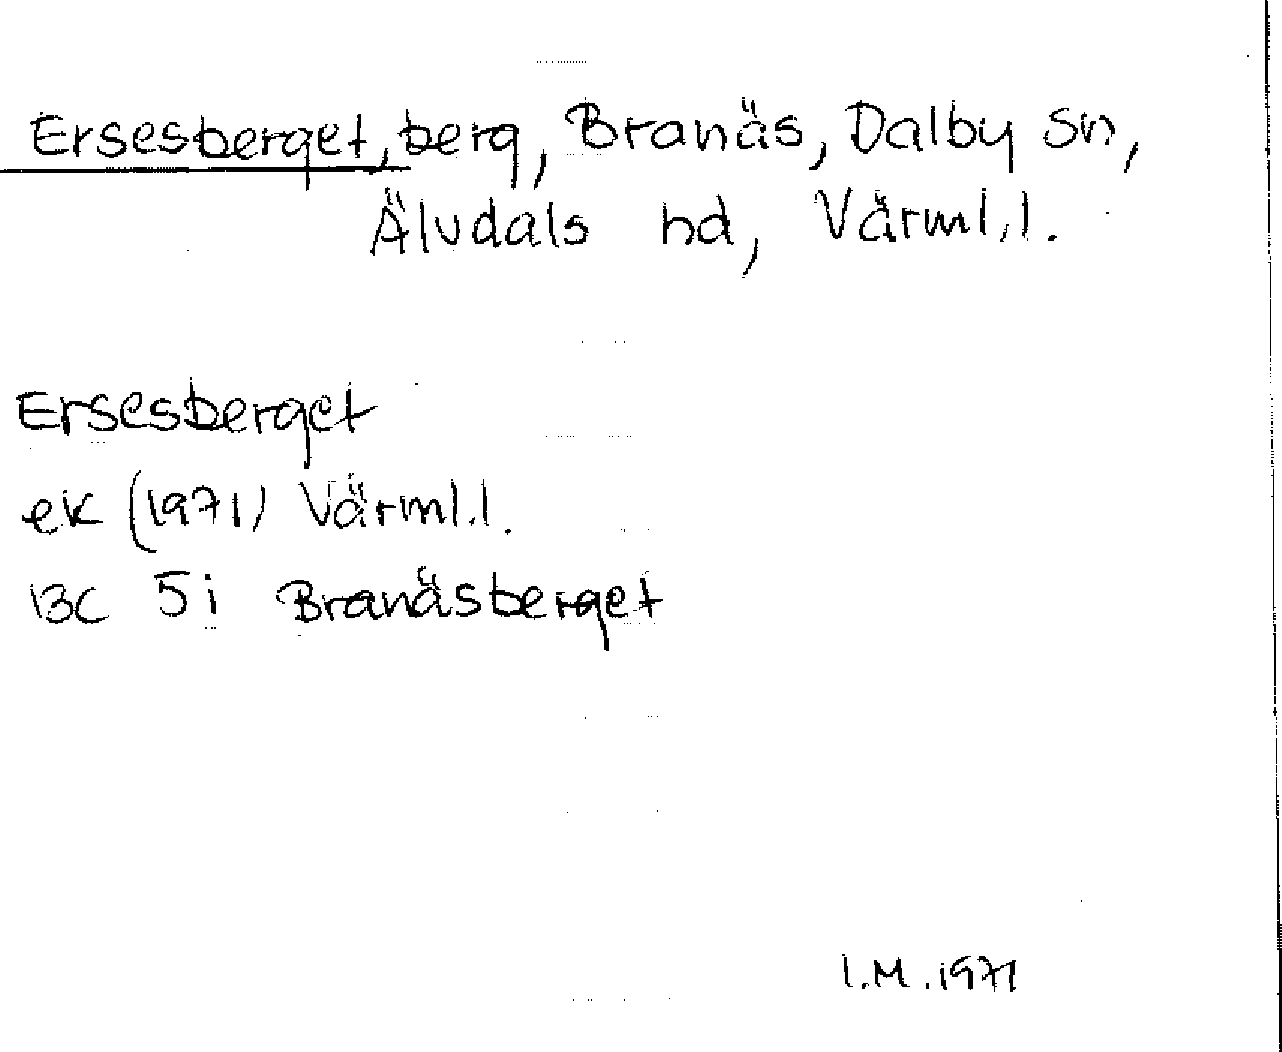 Ersesberget, berg, Branäs, Dalby sn,
Älvdals hd, Värml.l.
Ersesberget
ek (1971) Värml.l.
13C 5i Branäsberget
I.M. 1971